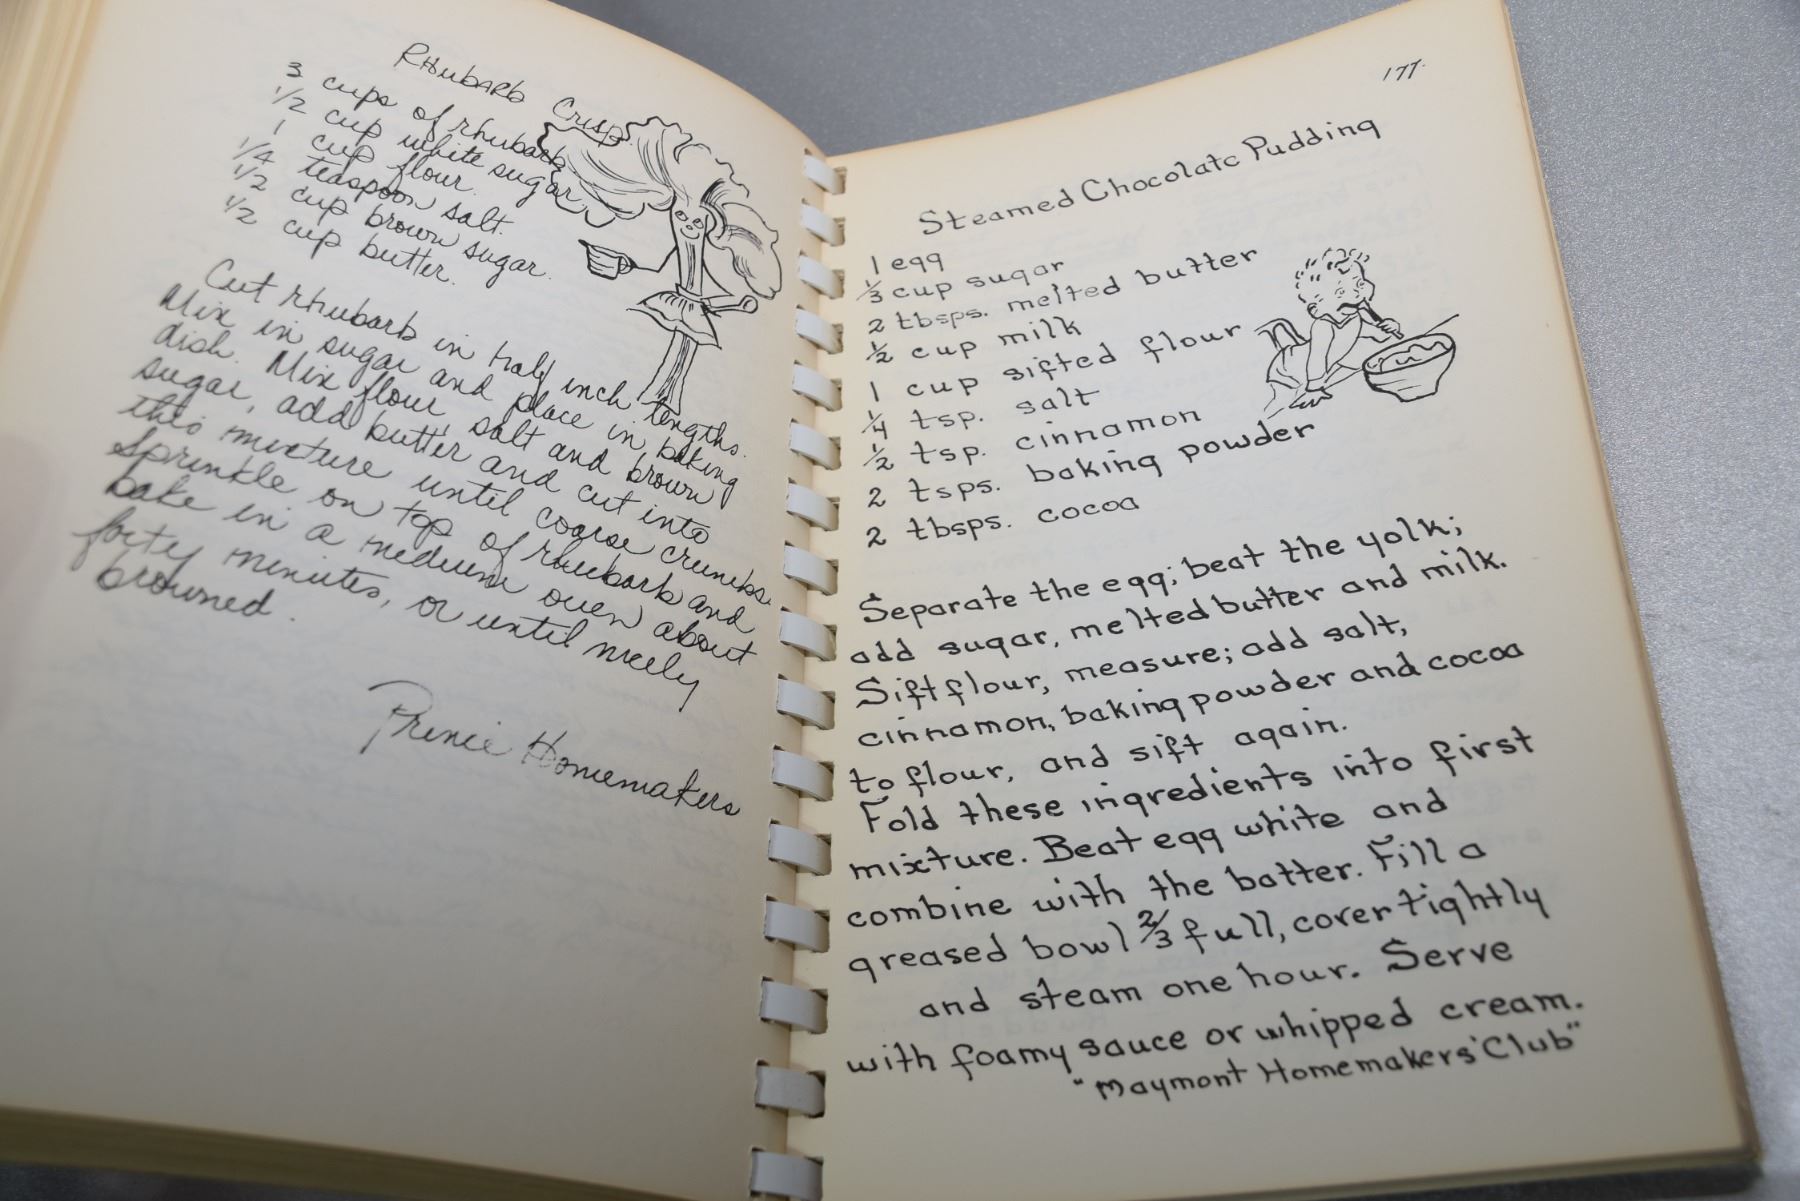 Rhubarb Crisp
3 cups of rhubarb
1/2 cup white sugar
1 cup flour.
1/4 teaspoon salt.
1/2 cup brown sugar.
1/2 cup butter.
Cut rhubarb in half inch lengths.
Mix in sugar and place in baking
dish. Mix flour, salt and brown
sugar, add butter and cut into
this mixture until coarse crumbs.
Sprinkle on top of rhubarb and
bake in a medium oven about
forty minutes, or until nicely
browned.
Prince Homemakers
177.
Steamed Chocolate Pudding
1 egg
1/3 cup sugar
2 tbsps. melted butter
1/2 cup milk
1 cup sifted flour
1/4 tsp. salt
1/2 tsp. cinnamon
2 tsps. baking powder
2 tbsps. cocoa
Separate the egg; beat the yolk;
add sugar, melted butter and milk.
Sift flour, measure; add salt,
cinnamon, baking powder and cocoa
to flour, and sift again.
Fold these ingredients into first
mixture. Beat egg white and
combine with the batter. Fill a
greased bowl 2/3 full, cover tightly
and steam one hour. Serve
with foamy sauce or whipped cream.
"Maymont Homemakers' Club"